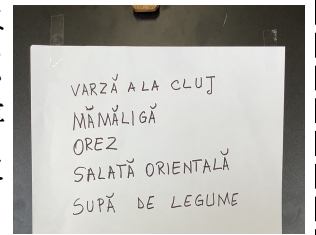 VARZĂ A LA CLUJ
MĂMĂLIGĂ
OREZ
SALATĂ ORIENTALĂ
SUPĂ DE LEGUME